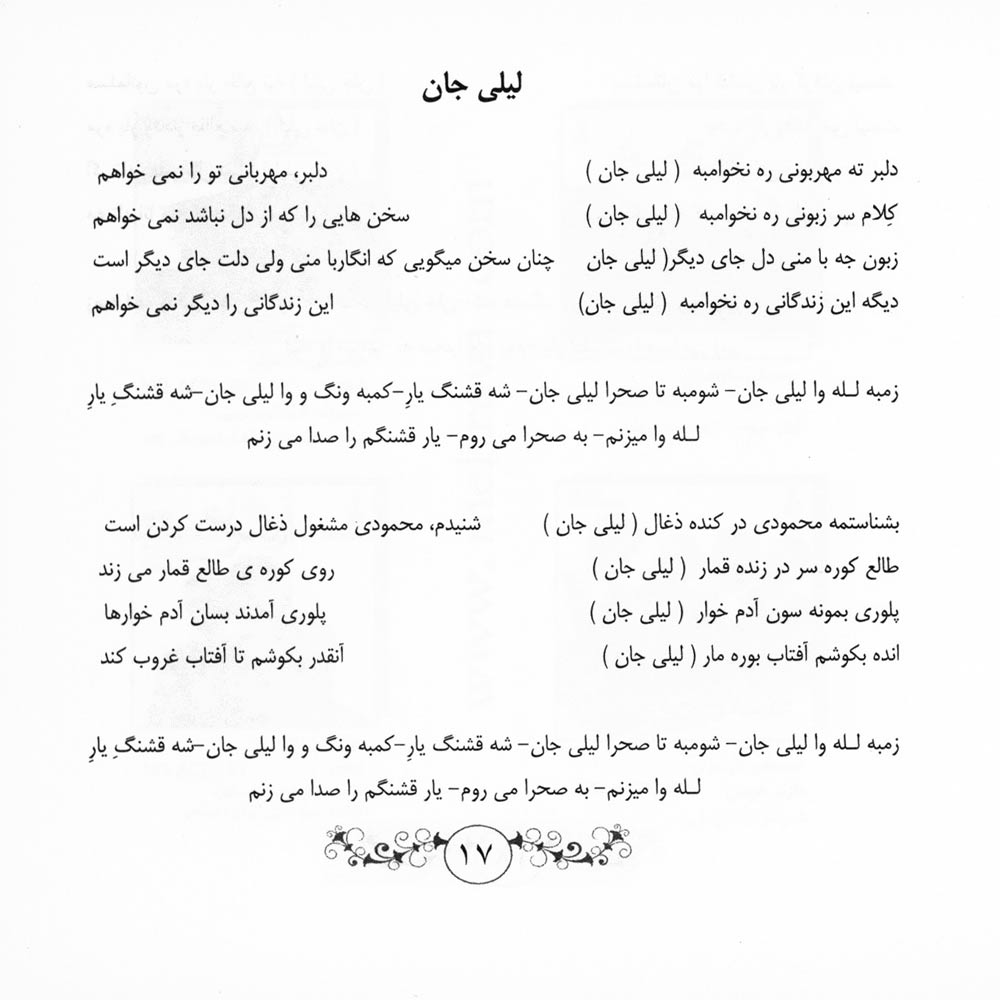 لیلی جان
دلبر ته مهربونی ره نخوامبه ( لیلی جان ) دلبر، مهربانی تو را نمی خواهم
کِلام سر زبونی ره نخوامبه ( لیلی جان ) سخن هایی را که از دل نباشد نمی خواهم
زبون جه با منی دل جای دیگر( لیلی جان چنان سخن میگویی که انگاربا منی ولی دلت جای دیگر است
دیگه این زندگانی ره نخوامبه ( لیلی جان) این زندگانی را دیگر نمی خواهم
زمبه لـله وا لیلی جان- شومبه تا صحرا لیلی جان- شه قشنگ یارِ-کمبه ونگ و وا لیلی جان-شه قشنگِ یارِ
لـله وا میزنم- به صحرا می روم- یار قشنگم را صدا می زنم
بشناستمه محمودی در کنده ذغال ( لیلی جان ) شنیدم، محمودی مشغول ذغال درست کردن است
طالع کوره سر در زنده قمار ( لیلی جان ) روی کوره ی طالع قمار می زند
پلوری بمونه سون آدم خوار ( لیلی جان ) پلوری آمدند بسان آدم خوارها
انده بکوشم آفتاب بوره مار ( لیلی جان ) آنقدر بکوشم تا آفتاب غروب کند
زمبه لـله وا لیلی جان- شومبه تا صحرا لیلی جان- شه قشنگ یارِ-کمبه ونگ و وا لیلی جان-شه قشنگِ یارِ
لـله وا میزنم- به صحرا می روم- یار قشنگم را صدا می زنم
۱۷